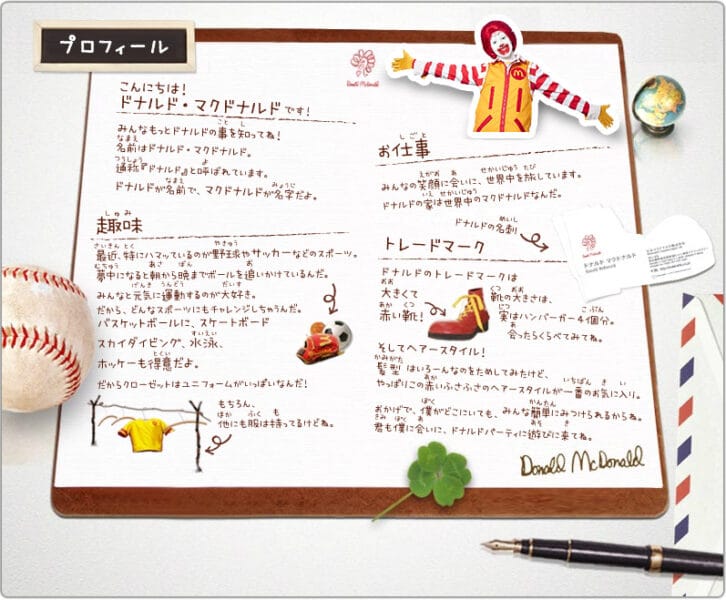 プロフィール
こんにちは！
ドナルド・マクドナルドです！
みんなもっとドナルドの事を知ってね！
名前はドナルド・マクドナルド。
通称『ドナルド』と呼ばれています。
ドナルドが名前で、マクドナルドが名字だよ。
趣味
最近、特にハマッているのが野球やサッカーなどのスポーツ。
夢中になると朝から晩までボールを追いかけているんだ。
みんなと元気に運動するのが大好き。
だから、どんなスポーツにもチャレンジしちゃうんだ。
バスケットボールに、スケートボード
スカイダイビング、水泳、
ホッケーも得意だよ。
だからクローゼットはユニフォームがいっぱいなんだ！
もちろん、
他にも服は持ってるけどね。
Ronald McDonald
お仕事
みんなの笑顔に会いに、世界中を旅しています。
ドナルドの家は世界中のマクドナルドなんだ。
ドナルドの名刺
ドナルド マクドナルド
トレードマーク
ドナルドのトレードマークは
大きくて
赤い靴！
靴の大きさは、
実はハンバーガー4個分。
会ったらくらべてみてね。
そしてヘアースタイル！
髪型はいろーんなのをためしてみたけど、
やっぱりこの赤いふさふさのヘアースタイルが一番のお気に入り。
おかげで、僕がどこにいても、みんな簡単にみつけられるからね。
君も僕に会いに、ドナルドパーティに遊びに来てね。
Donald McDonald